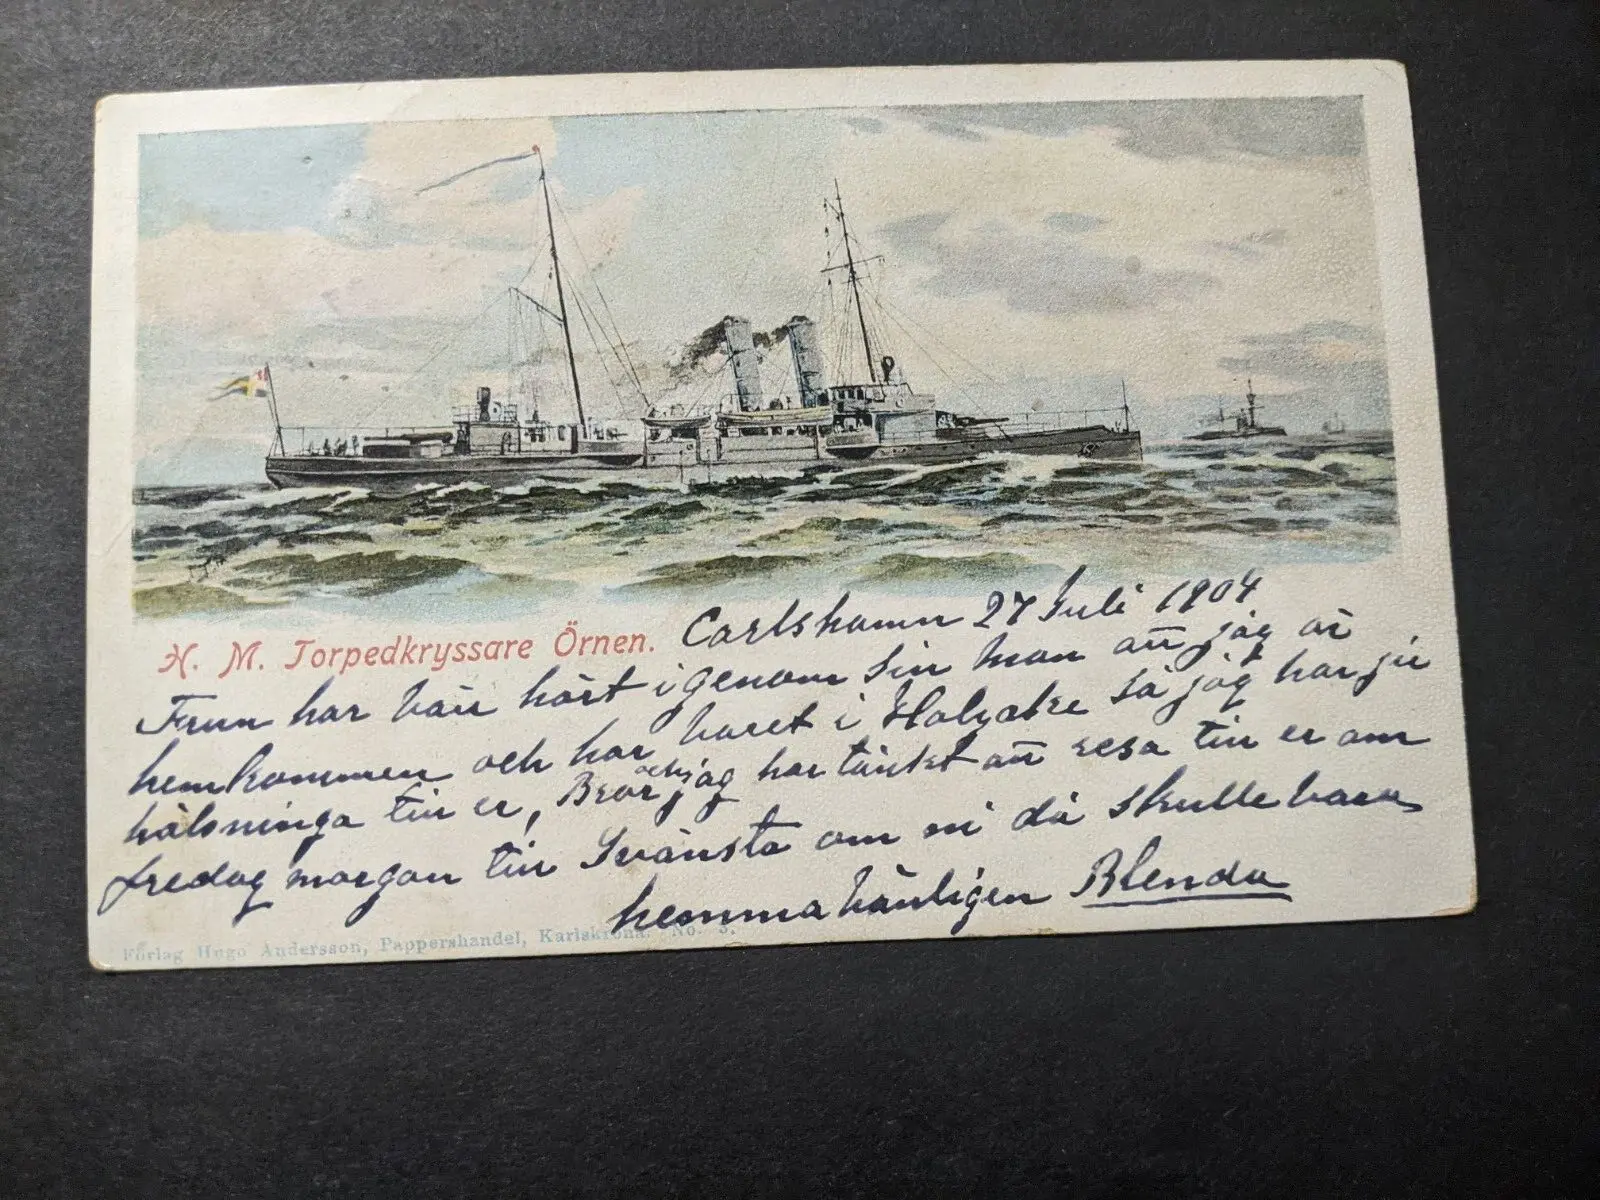 H. M. Torpedkryssare Örnen.
Carlshamn 27 Juli 1904
Frun har väll hört igenom sin man att jag är
hemkommen och har varet i så jag har ju
hälsninga till er, Bror och jag har tänkt att resa till er om
fredag morgon till Svänsta om ni då skulle vara
hemma vänligen Blenda
Förlag Hugo Andersson, Pappershandel, Karlskrona. No. 3.